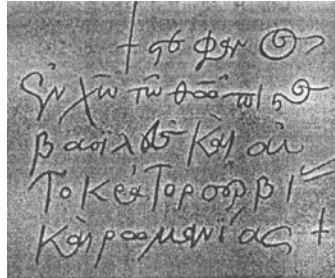 + ϛέφανος
ἐν χῶ τῶ θῶ πιϛὸς
βασιλεὺς καὶ αὐ
τοκράτορ σερβί
καὶ ρωμανίας +